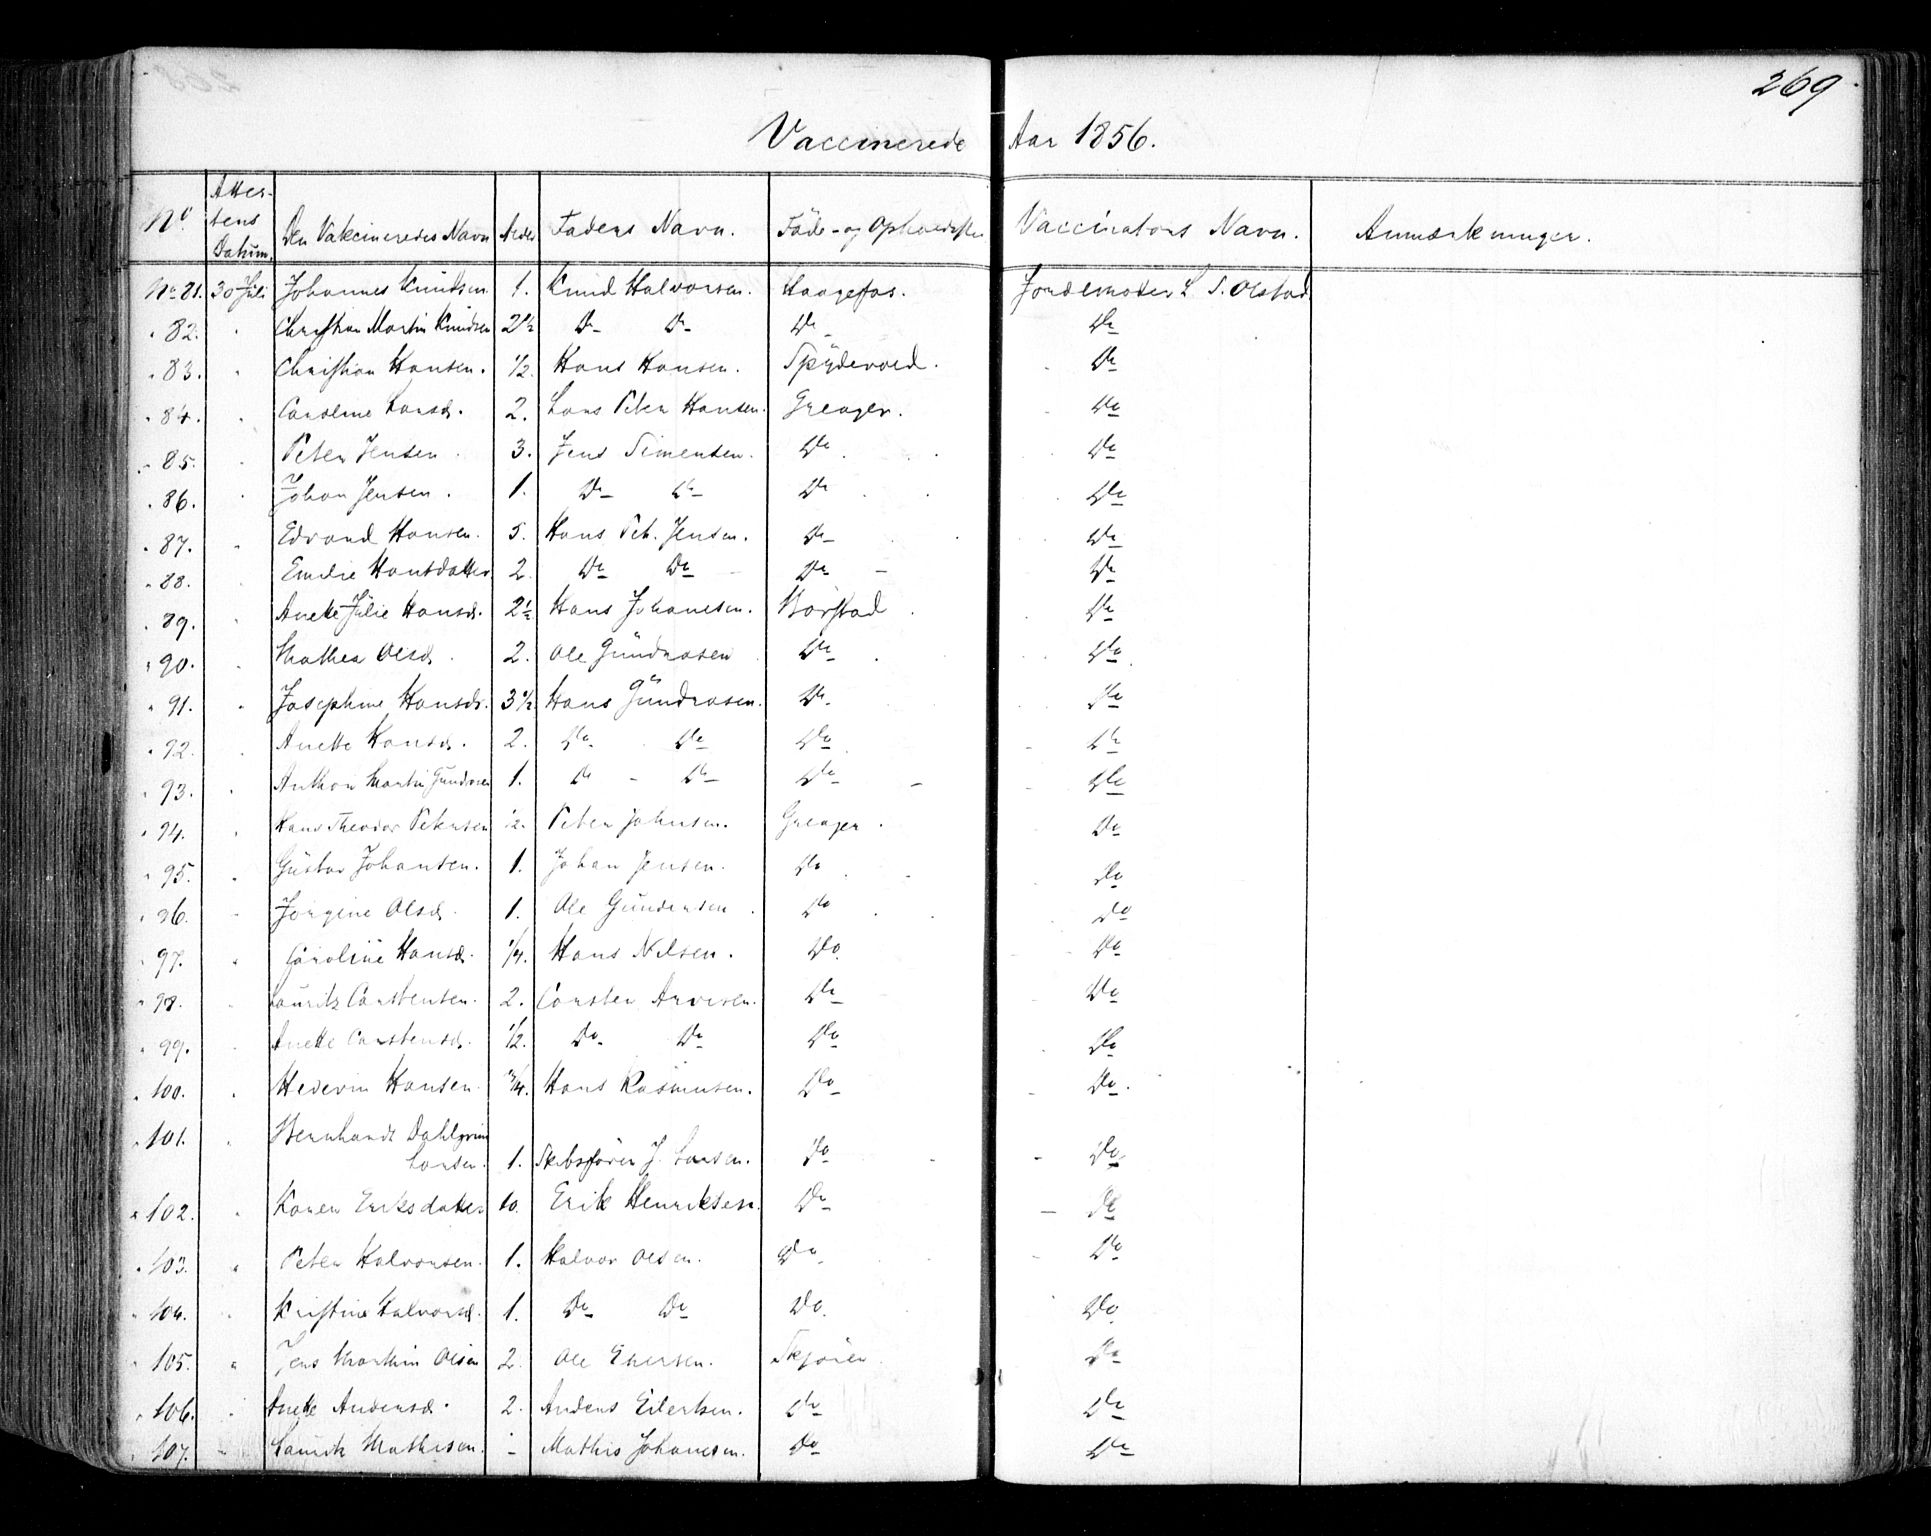 269
Vaccinerede Aar 1856.
No. Attestens Datum. Den Vakcineredes Navn Alder Faders Navn. Føde- og Opholdsste Vaccinators Navn. Anmærkninger.
No 81. 30 Juli Johannes Knudsen 1. Knud Halvorsen. Haagefos. Jordemoder L. S. Olstad
" 82. " Christian Martin Knudsen 2½ Do Do Do Do
" 83. " Christian Hansen. ½. Hans Hansen. Spydevold. Do
" 84. " Caroline Larsd. 2. Lars Peter Hansen. Greager. Do
" 85. " Peter Jensen 3. Jens Simensen. Do Do
" 86. " Johan Jensen. 1. Do Do Do Do
" 87. " Edvard Hansen. 5. Hans Pet. Jensen. Do Do
" 88. Emilie Hansdatter 2. Do Do Do Do
" 89. " Anette Julie Hansd. 2½ Hans Johanesen. Børstad Do
" 90. " Mathea Olsd. 2. Ole Gundrosen Do Do
" 91. " Josephine Hansd. 3½ Hans Gundrosen. Do Do
" 92. " Anette Hansd. 2. Do Do Do Do
" 93. " Anthon Martin Gundrosen 1. Do Do Do Do
" 94. " Hans Theodor Petersen ½. Peter Johnsen. Greager. Do
" 95. " Gustav Johansen. 1. Johan Jensen. Do Do
" 96. " Jørgine Olsd. 1. Ole Gundersen Do Do
" 97. " Caroline Hansd. ¼. Hans Nilsen. Do. Do
" 98. " Lauritz Carstensen. 2. Carsten Arvesen. Do Do
" 99. " Anette Carstensd. ½. Do Do Do Do
" 100. " Hedevin Hansen. ¾. Hans Rasmusen. Do Do.
" 101. " Bernhardt Dahlgrim
Larsen. 1. Skibsfører J. Larsen. Do Do
" 102. " Karen Eriksdatter 10. Erik Henriksen. Do Do
" 103. " Peter Halvorsen. 1. Halvor Olsen. Do Do
" 104. " Kristine Halvorsd. 1. Do Do Do. Do
" 105. " Jens Martin Olsen 2. Ole Ehersen. Skjøren. Do
" 106. " Anette Andersd. 2. Anders Eilertsen. Do Do
" 107. " Laurits Mathisen. " Mathis Johanesen. Do Do